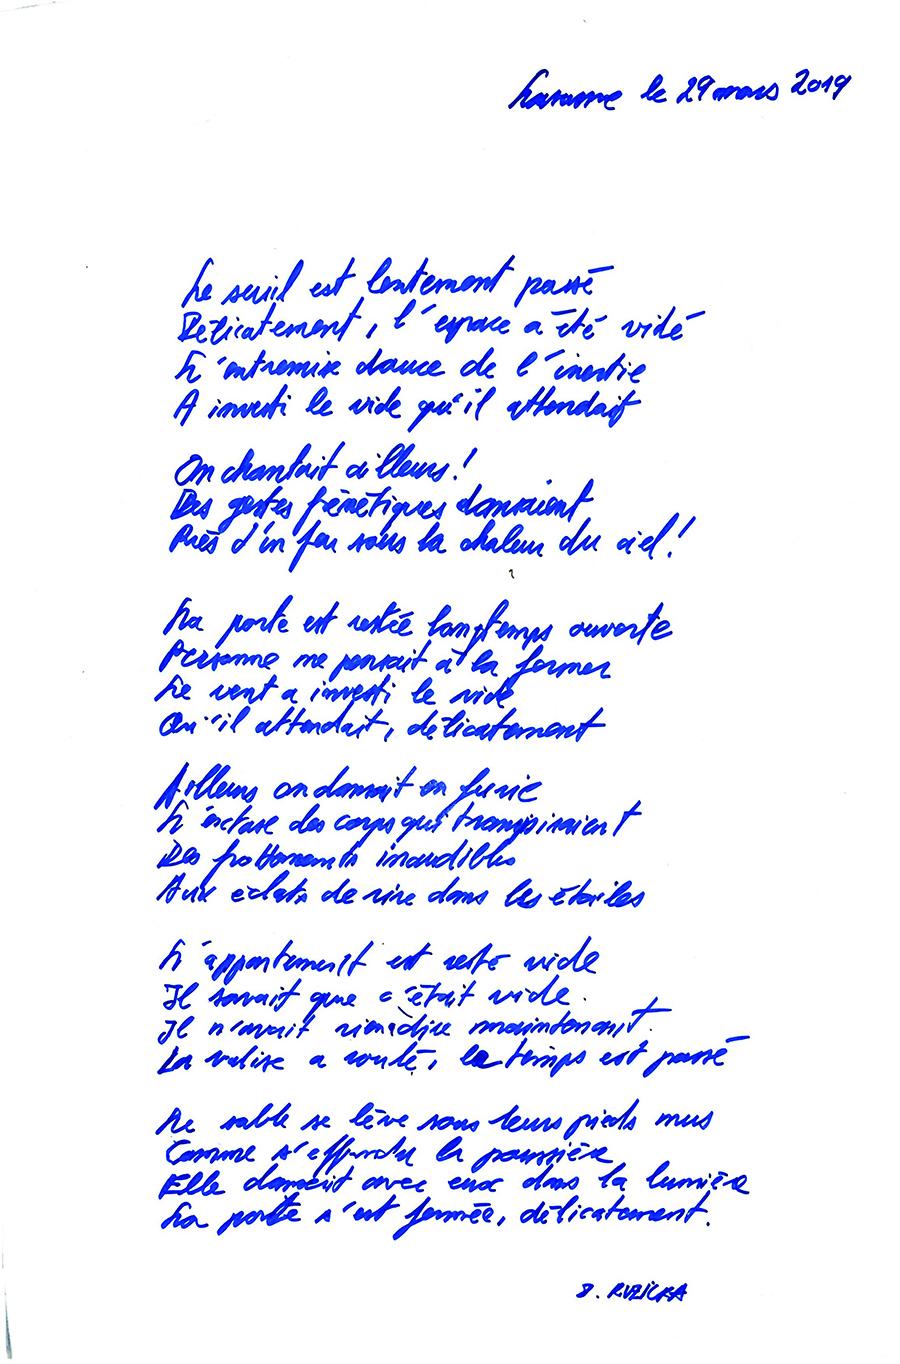 Lausanne le 29 mars 2019
Le seuil est lentement passé
Délicatement, l'espace a été vidé
L'entremise douce de l'inertie
A investi le vide qu'il attendait
On chantait ailleurs!
Des gestes frénétiques dansaient
Près d'un feu sous la chaleur du ciel!
La porte est restée longtemps ouverte
Personne ne pensait à la fermer
Le vent a investi le vide
Qu'il attendait, délicatement
Ailleurs on dansait en furie
L'extase des corps qui transpiraient
Des frottements inaudibles
Aux éclats de rire dans les étoiles
L'appartement est resté vide
Il savait que c'était vide.
Il n'avait rien à dire maintenant.
La valise a roulé, le temps est passé
Le sable se lève sous leurs pieds nus
Comme s'effondre la poussière
Elle dansait avec eux dans la lumière
La porte s'est fermée, délicatement.
RUZICKA